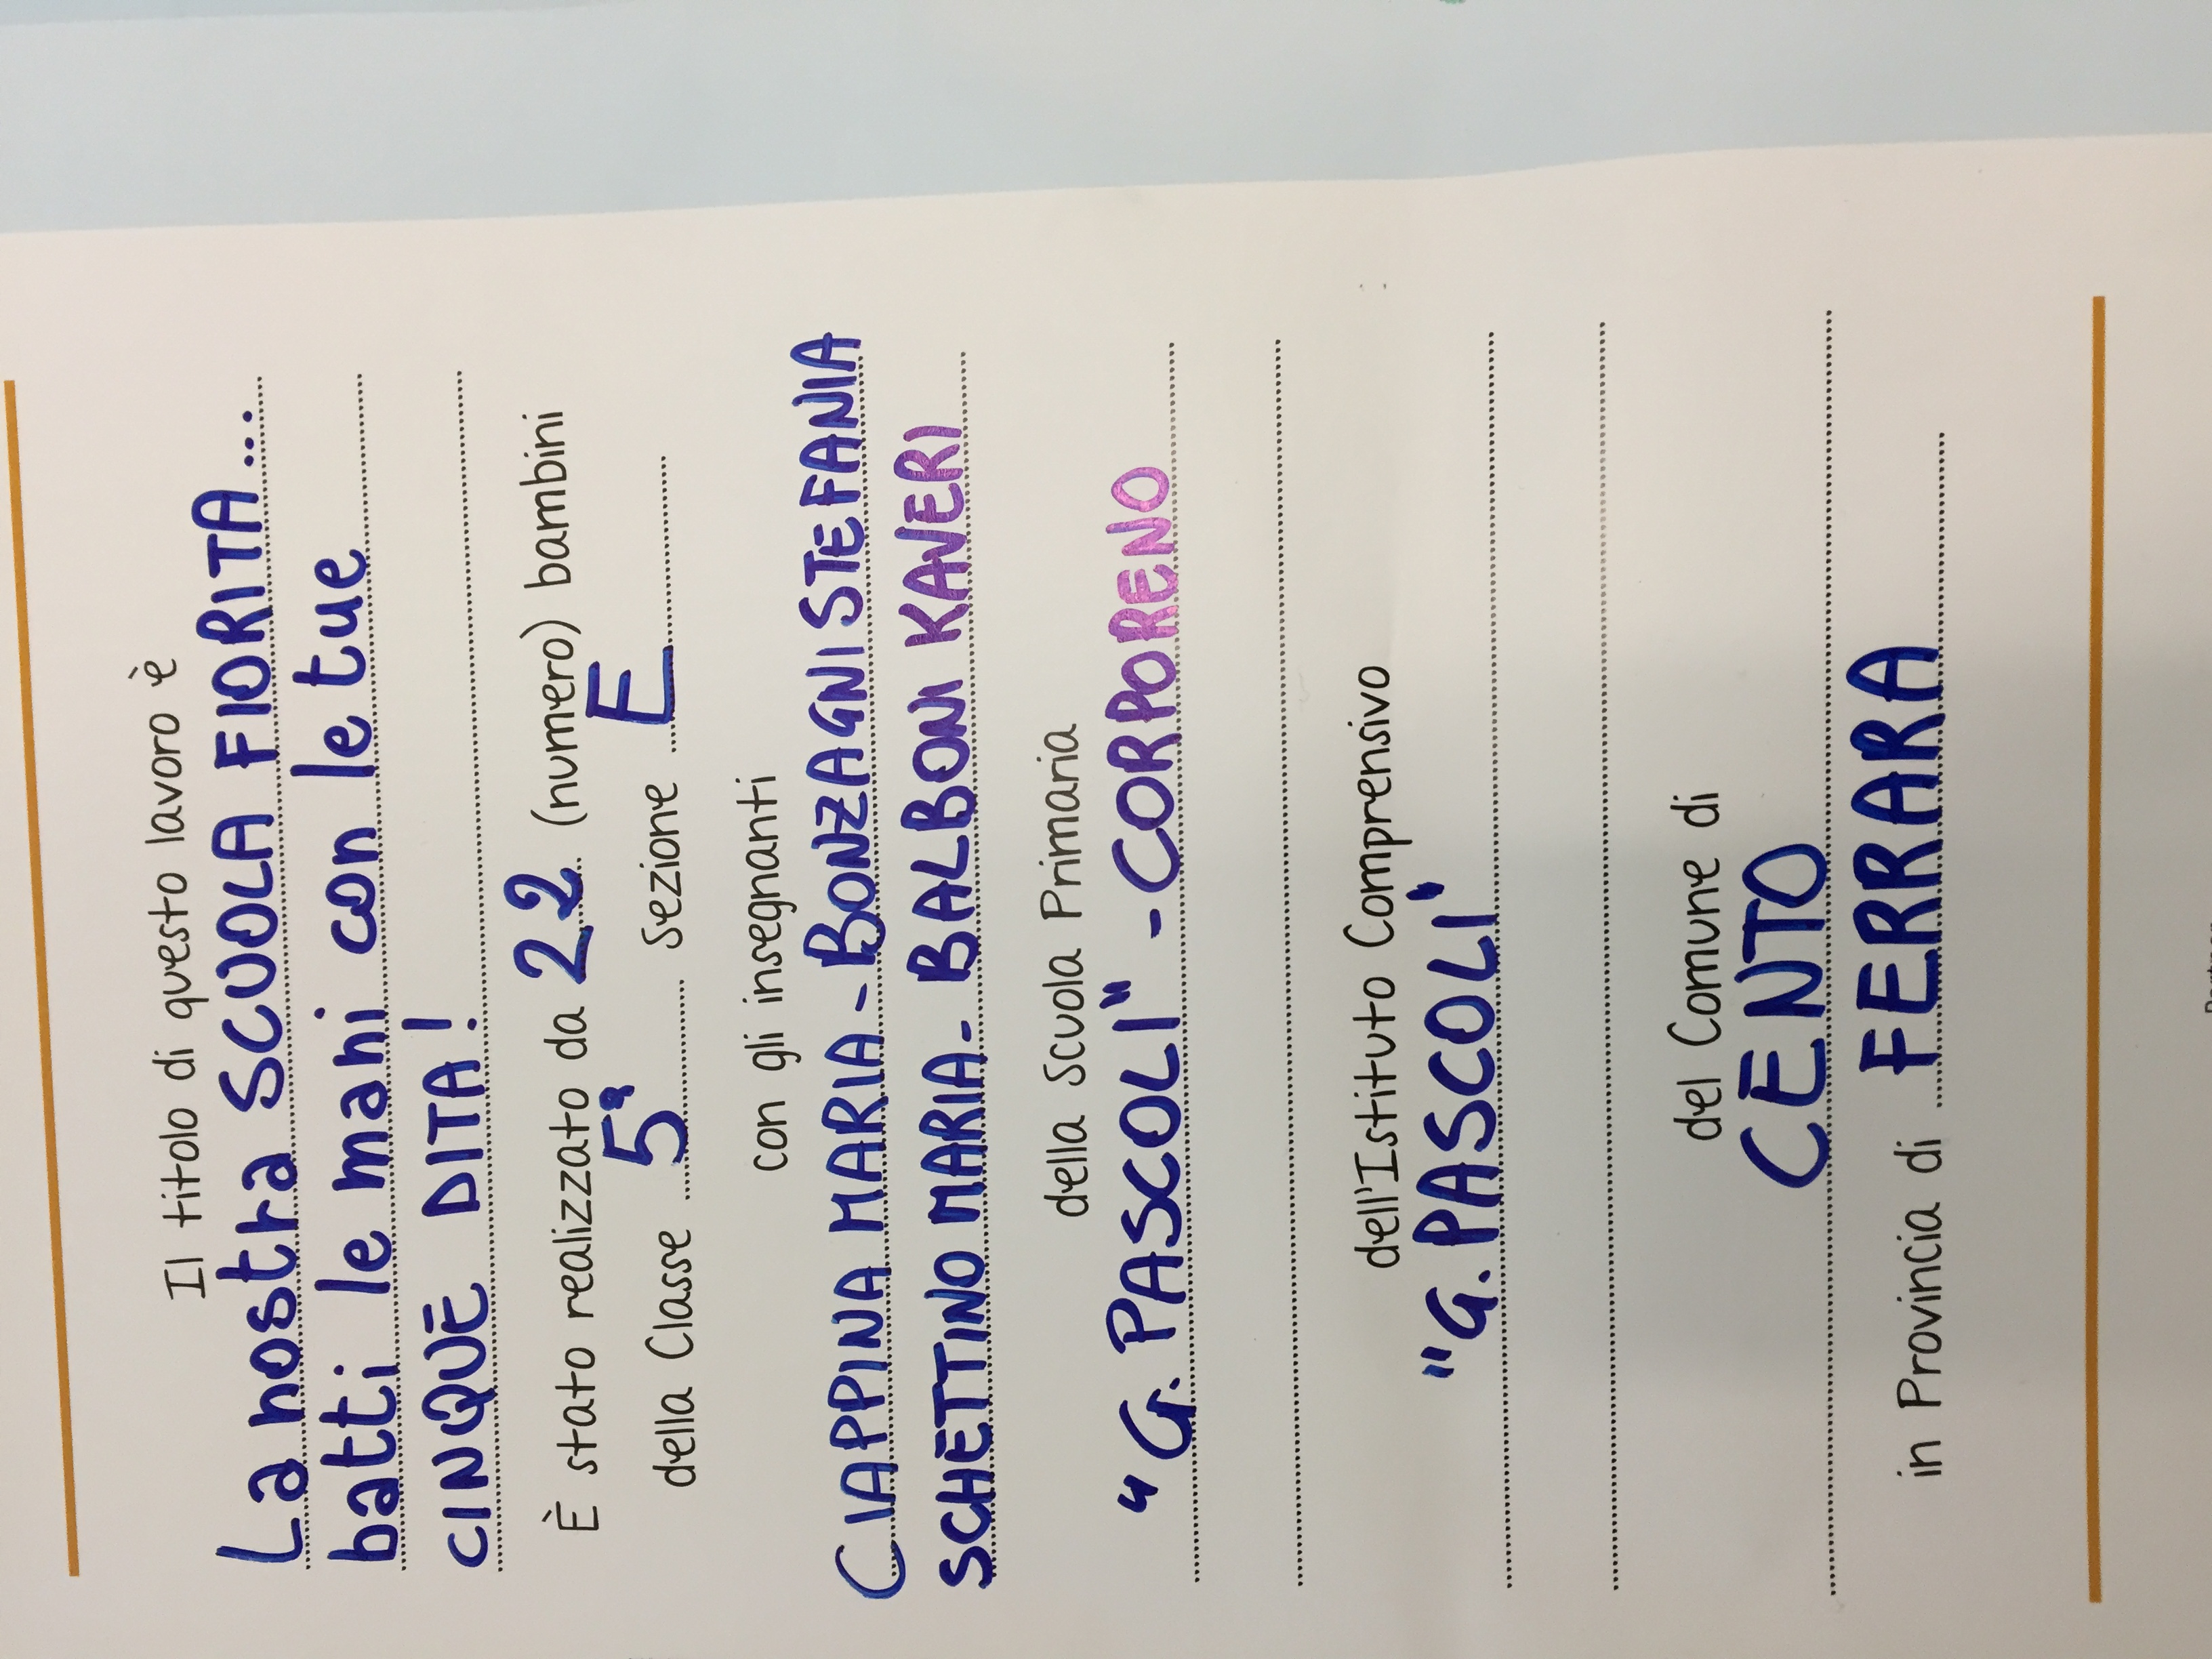 Il titolo di questo lavoro è
La nostra SCUOLA FIORITA...
batti le mani con le tue
CINQUE DITA!
È stato realizzato da 22 (numero) bambini
della Classe 5ª Sezione E
con gli insegnanti
CIAPPINA MARIA - BONZAGNI STEFANIA
SCHETTINO MARIA - BALBONI KAVERI
della Scuola Primaria
"G. PASCOLI" - CORPORENO
dell'Istituto Comprensivo
"G. PASCOLI"
del Comune di
CENTO
in Provincia di FERRARA